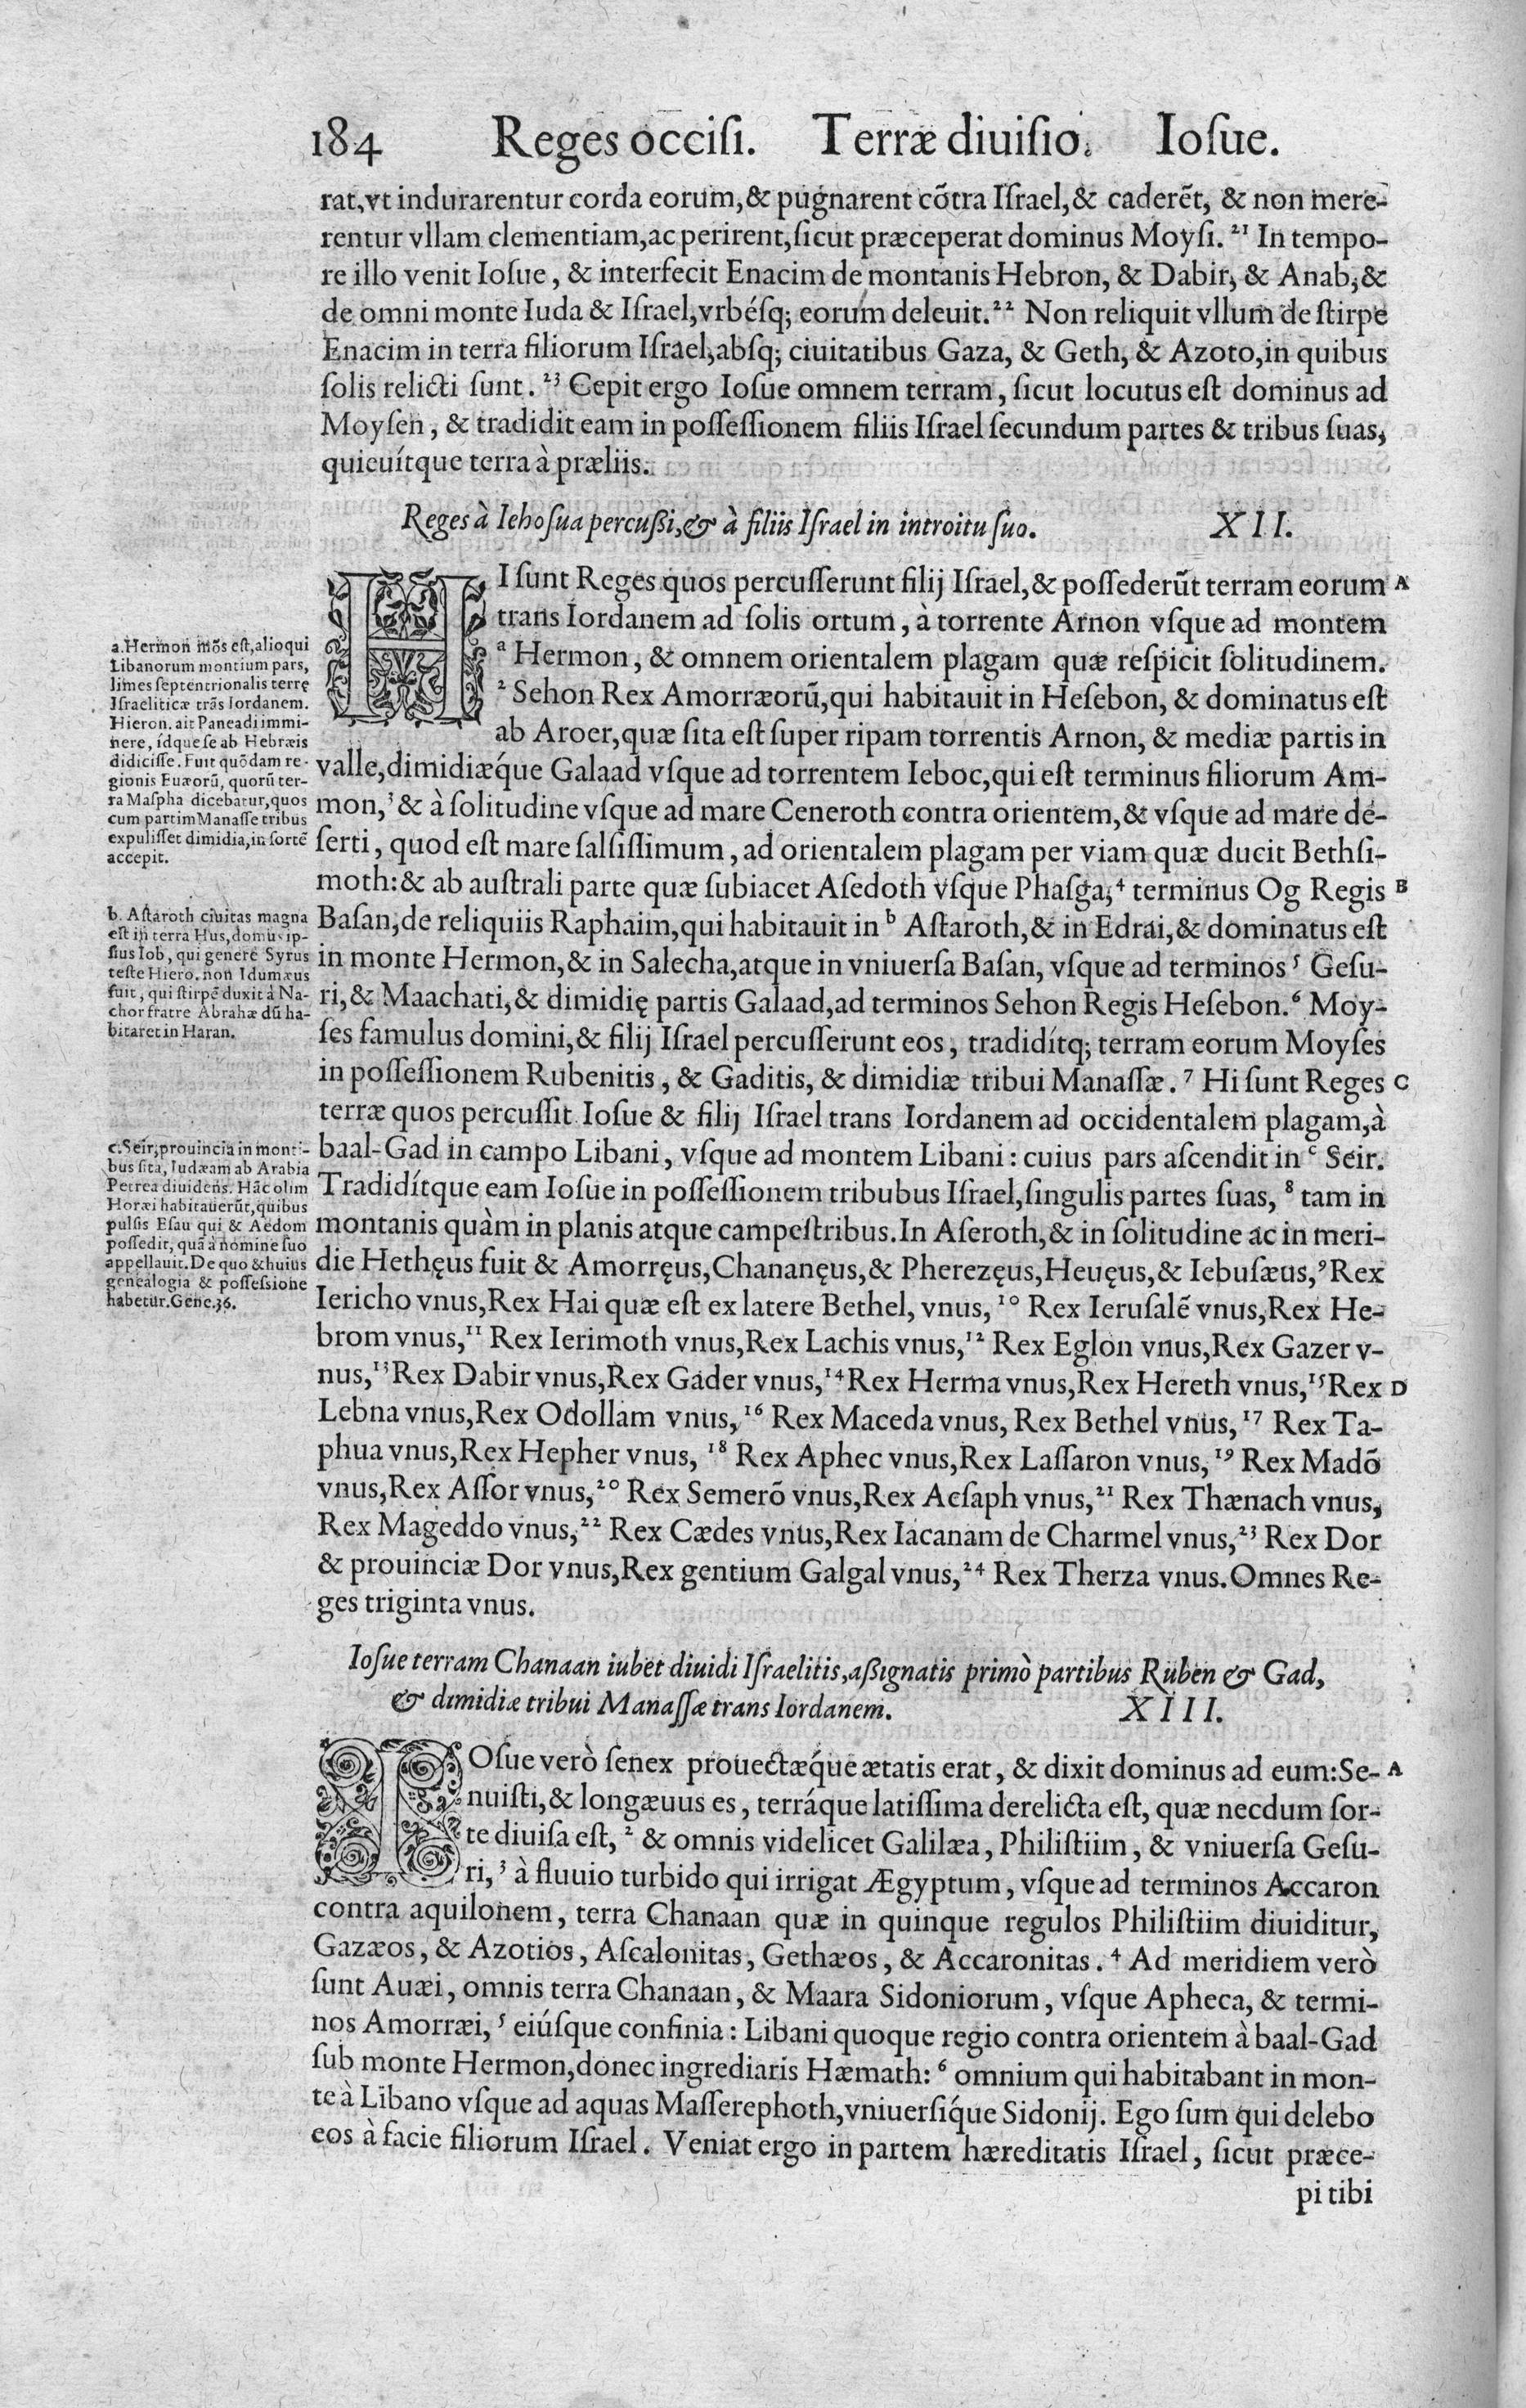 184 Reges occiſi. Terræ diuiſio. Ioſue.
rat, vt indurarentur corda eorum, & pugnarent cõtra Iſrael, & caderẽt, & non mere-
rentur vllam clementiam, ac perirent, ſicut præceperat dominus Moyſi. ²¹ In tempo-
re illo venit Ioſue, & interfecit Enacim de montanis Hebron, & Dabir, & Anab, &
de omni monte Iuda & Iſrael, vrbéſq; eorum deleuit. ²² Non reliquit vllum de ſtirpe
Enacim in terra filiorum Iſrael, abſq; ciuitatibus Gaza, & Geth, & Azoto, in quibus
ſolis relicti ſunt. ²³ Cepit ergo Ioſue omnem terram, ſicut locutus eſt dominus ad
Moyſen, & tradidit eam in poſſeſſionem filiis Iſrael ſecundum partes & tribus ſuas,
quieuítque terra à præliis.
Reges à Iehoſua percußi, & à filiis Iſrael in introitu ſuo. XII.
HI ſunt Reges quos percuſſerunt filij Iſrael, & poſſederũt terram eorum A
trans Iordanem ad ſolis ortum, à torrente Arnon vſque ad montem
ᵃ Hermon, & omnem orientalem plagam quæ reſpicit ſolitudinem.
² Sehon Rex Amorræorũ, qui habitauit in Heſebon, & dominatus eſt
ab Aroer, quæ ſita eſt ſuper ripam torrentis Arnon, & mediæ partis in
valle, dimidiæq́ue Galaad vſque ad torrentem Ieboc, qui eſt terminus filiorum Am-
mon, ³ & à ſolitudine vſque ad mare Ceneroth contra orientem, & vſque ad mare de-
ſerti, quod eſt mare ſalſiſſimum, ad orientalem plagam per viam quæ ducit Bethſi-
moth: & ab auſtrali parte quæ ſubiacet Aſedoth vſque Phaſga, ⁴ terminus Og Regis B
Baſan, de reliquiis Raphaim, qui habitauit in ᵇ Aſtaroth, & in Edrai, & dominatus eſt
in monte Hermon, & in Salecha, atque in vniuerſa Baſan, vſque ad terminos ⁵ Geſu-
ri, & Maachati, & dimidię partis Galaad, ad terminos Sehon Regis Heſebon. ⁶ Moy-
ſes famulus domini, & filij Iſrael percuſſerunt eos, tradidítq; terram eorum Moyſes
in poſſeſſionem Rubenitis, & Gaditis, & dimidiæ tribui Manaſſæ. ⁷ Hi ſunt Reges C
terræ quos percuſſit Ioſue & filij Iſrael trans Iordanem ad occidentalem plagam, à
baal-Gad in campo Libani, vſque ad montem Libani: cuius pars aſcendit in ᶜ Seir.
Tradidítque eam Ioſue in poſſeſſionem tribubus Iſrael, ſingulis partes ſuas, ⁸ tam in
montanis quàm in planis atque campeſtribus. In Aſeroth, & in ſolitudine ac in meri-
die Hethęus fuit & Amorręus, Chananęus, & Pherezęus, Heuęus, & Iebuſæus, ⁹ Rex
Iericho vnus, Rex Hai quæ eſt ex latere Bethel, vnus, ¹⁰ Rex Ieruſalẽ vnus, Rex He-
brom vnus, ¹¹ Rex Ierimoth vnus, Rex Lachis vnus, ¹² Rex Eglon vnus, Rex Gazer v-
nus, ¹³ Rex Dabir vnus, Rex Gader vnus, ¹⁴ Rex Herma vnus, Rex Hereth vnus, ¹⁵ Rex D
Lebna vnus, Rex Odollam vnus, ¹⁶ Rex Maceda vnus, Rex Bethel vnus, ¹⁷ Rex Ta-
phua vnus, Rex Hepher vnus, ¹⁸ Rex Aphec vnus, Rex Laſſaron vnus, ¹⁹ Rex Madõ
vnus, Rex Aſſor vnus, ²⁰ Rex Semerõ vnus, Rex Acſaph vnus, ²¹ Rex Thænach vnus,
Rex Mageddo vnus, ²² Rex Cædes vnus, Rex Iacanam de Charmel vnus, ²³ Rex Dor
& prouinciæ Dor vnus, Rex gentium Galgal vnus, ²⁴ Rex Therza vnus. Omnes Re-
ges triginta vnus.
Ioſue terram Chanaan iubet diuidi Iſraelitis, aßignatis primò partibus Ruben & Gad,
& dimidiæ tribui Manaſſæ trans Iordanem. XIII.
IOſue verò ſenex prouectæq́ue ætatis erat, & dixit dominus ad eum: Se- A
nuiſti, & longæuus es, terráque latiſſima derelicta eſt, quæ necdum ſor-
te diuiſa eſt, ² & omnis videlicet Galilæa, Philiſtiim, & vniuerſa Geſu-
ri, ³ à fluuio turbido qui irrigat Ægyptum, vſque ad terminos Accaron
contra aquilonem, terra Chanaan quæ in quinque regulos Philiſtiim diuiditur,
Gazæos, & Azotios, Aſcalonitas, Gethæos, & Accaronitas. ⁴ Ad meridiem verò
ſunt Auæi, omnis terra Chanaan, & Maara Sidoniorum, vſque Apheca, & termi-
nos Amorræi, ⁵ eiúſque confinia: Libani quoque regio contra orientem à baal-Gad
ſub monte Hermon, donec ingrediaris Hæmath: ⁶ omnium qui habitabant in mon-
te à Libano vſque ad aquas Maſſerephoth, vniuerſiq́ue Sidonij. Ego ſum qui delebo
eos à facie filiorum Iſrael. Veniat ergo in partem hæreditatis Iſrael, ſicut præce-
pi tibi
a. Hermon mõs eſt, alioqui
Libanorum montium pars,
limes ſeptentrionalis terrę
Iſraeliticæ trãs Iordanem.
Hieron. ait Paneadi immi-
nere, idque ſe ab Hebræis
didiciſſe. Fuit quõdam re-
gionis Euæorũ, quorũ ter-
ra Maſpha dicebatur, quos
cum partim Manaſſe tribus
expuliſſet dimidia, in ſortẽ
accepit.
b. Aſtaroth ciuitas magna
eſt in terra Hus, domus ip-
ſius Iob, qui genere Syrus
teſte Hiero. non Idumæus
fuit, qui ſtirpẽ duxit à Na-
chor fratre Abrahæ dũ ha-
bitaret in Haran.
c. Seir, prouincia in monti-
bus ſita, Iudæam ab Arabia
Petrea diuidens. Hãc olim
Horæi habitauerũt, quibus
pulſis Eſau qui & Aedom
poſſedit, quã à nomine ſuo
appellauit. De quo & huius
genealogia & poſſeſsione
habetur. Gene. 36.